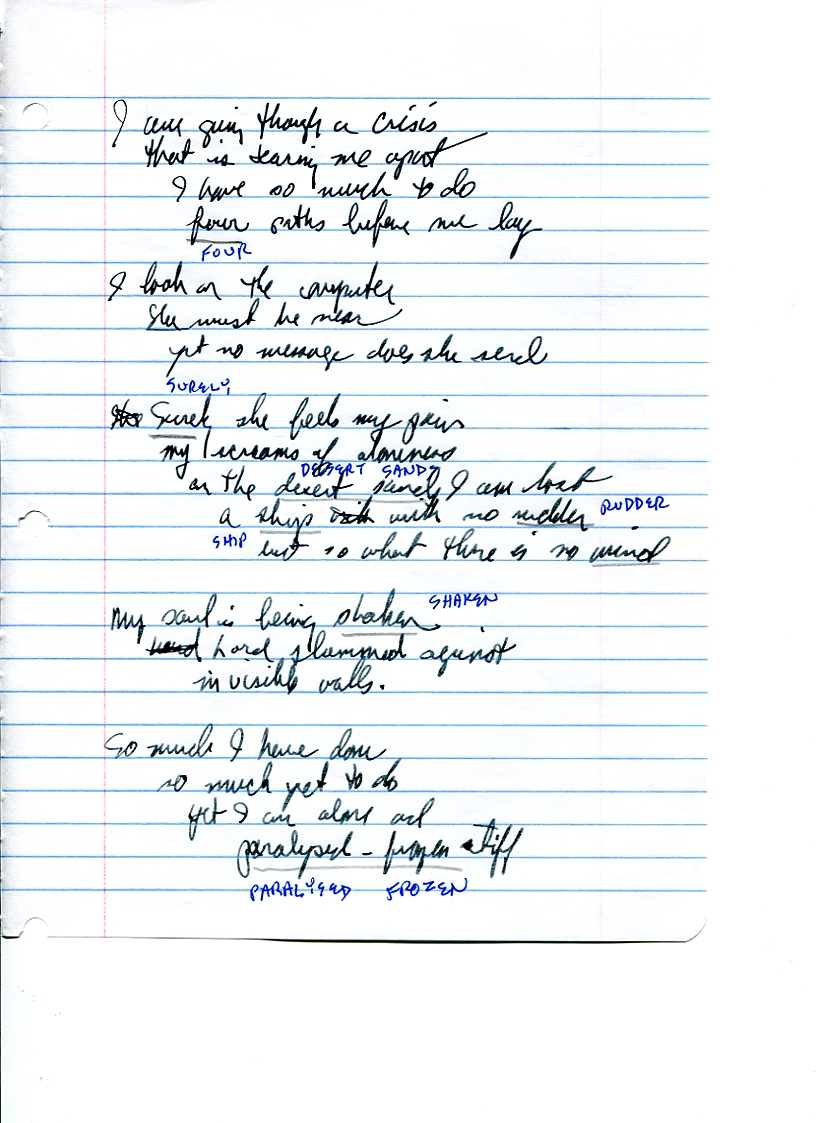 I am going though a crisis
that is tearing me apart
I have so much to do
four paths before me lay
FOUR
I look on the computer
She must be near
yet no message does she send
SURELY
Surely she feels my pain
my screams of aloneness
DESERT SANDS
on the desert sands I am lost
a ship with with no rudder RUDDER
SHIP but so what there is no wind
My soul is being shaken SHAKEN
hard hard slammed against
invisible walls.
So much I have done
so much yet to do
yet I am alone and
paralysed - frozen stiff
PARALYSED FROZEN